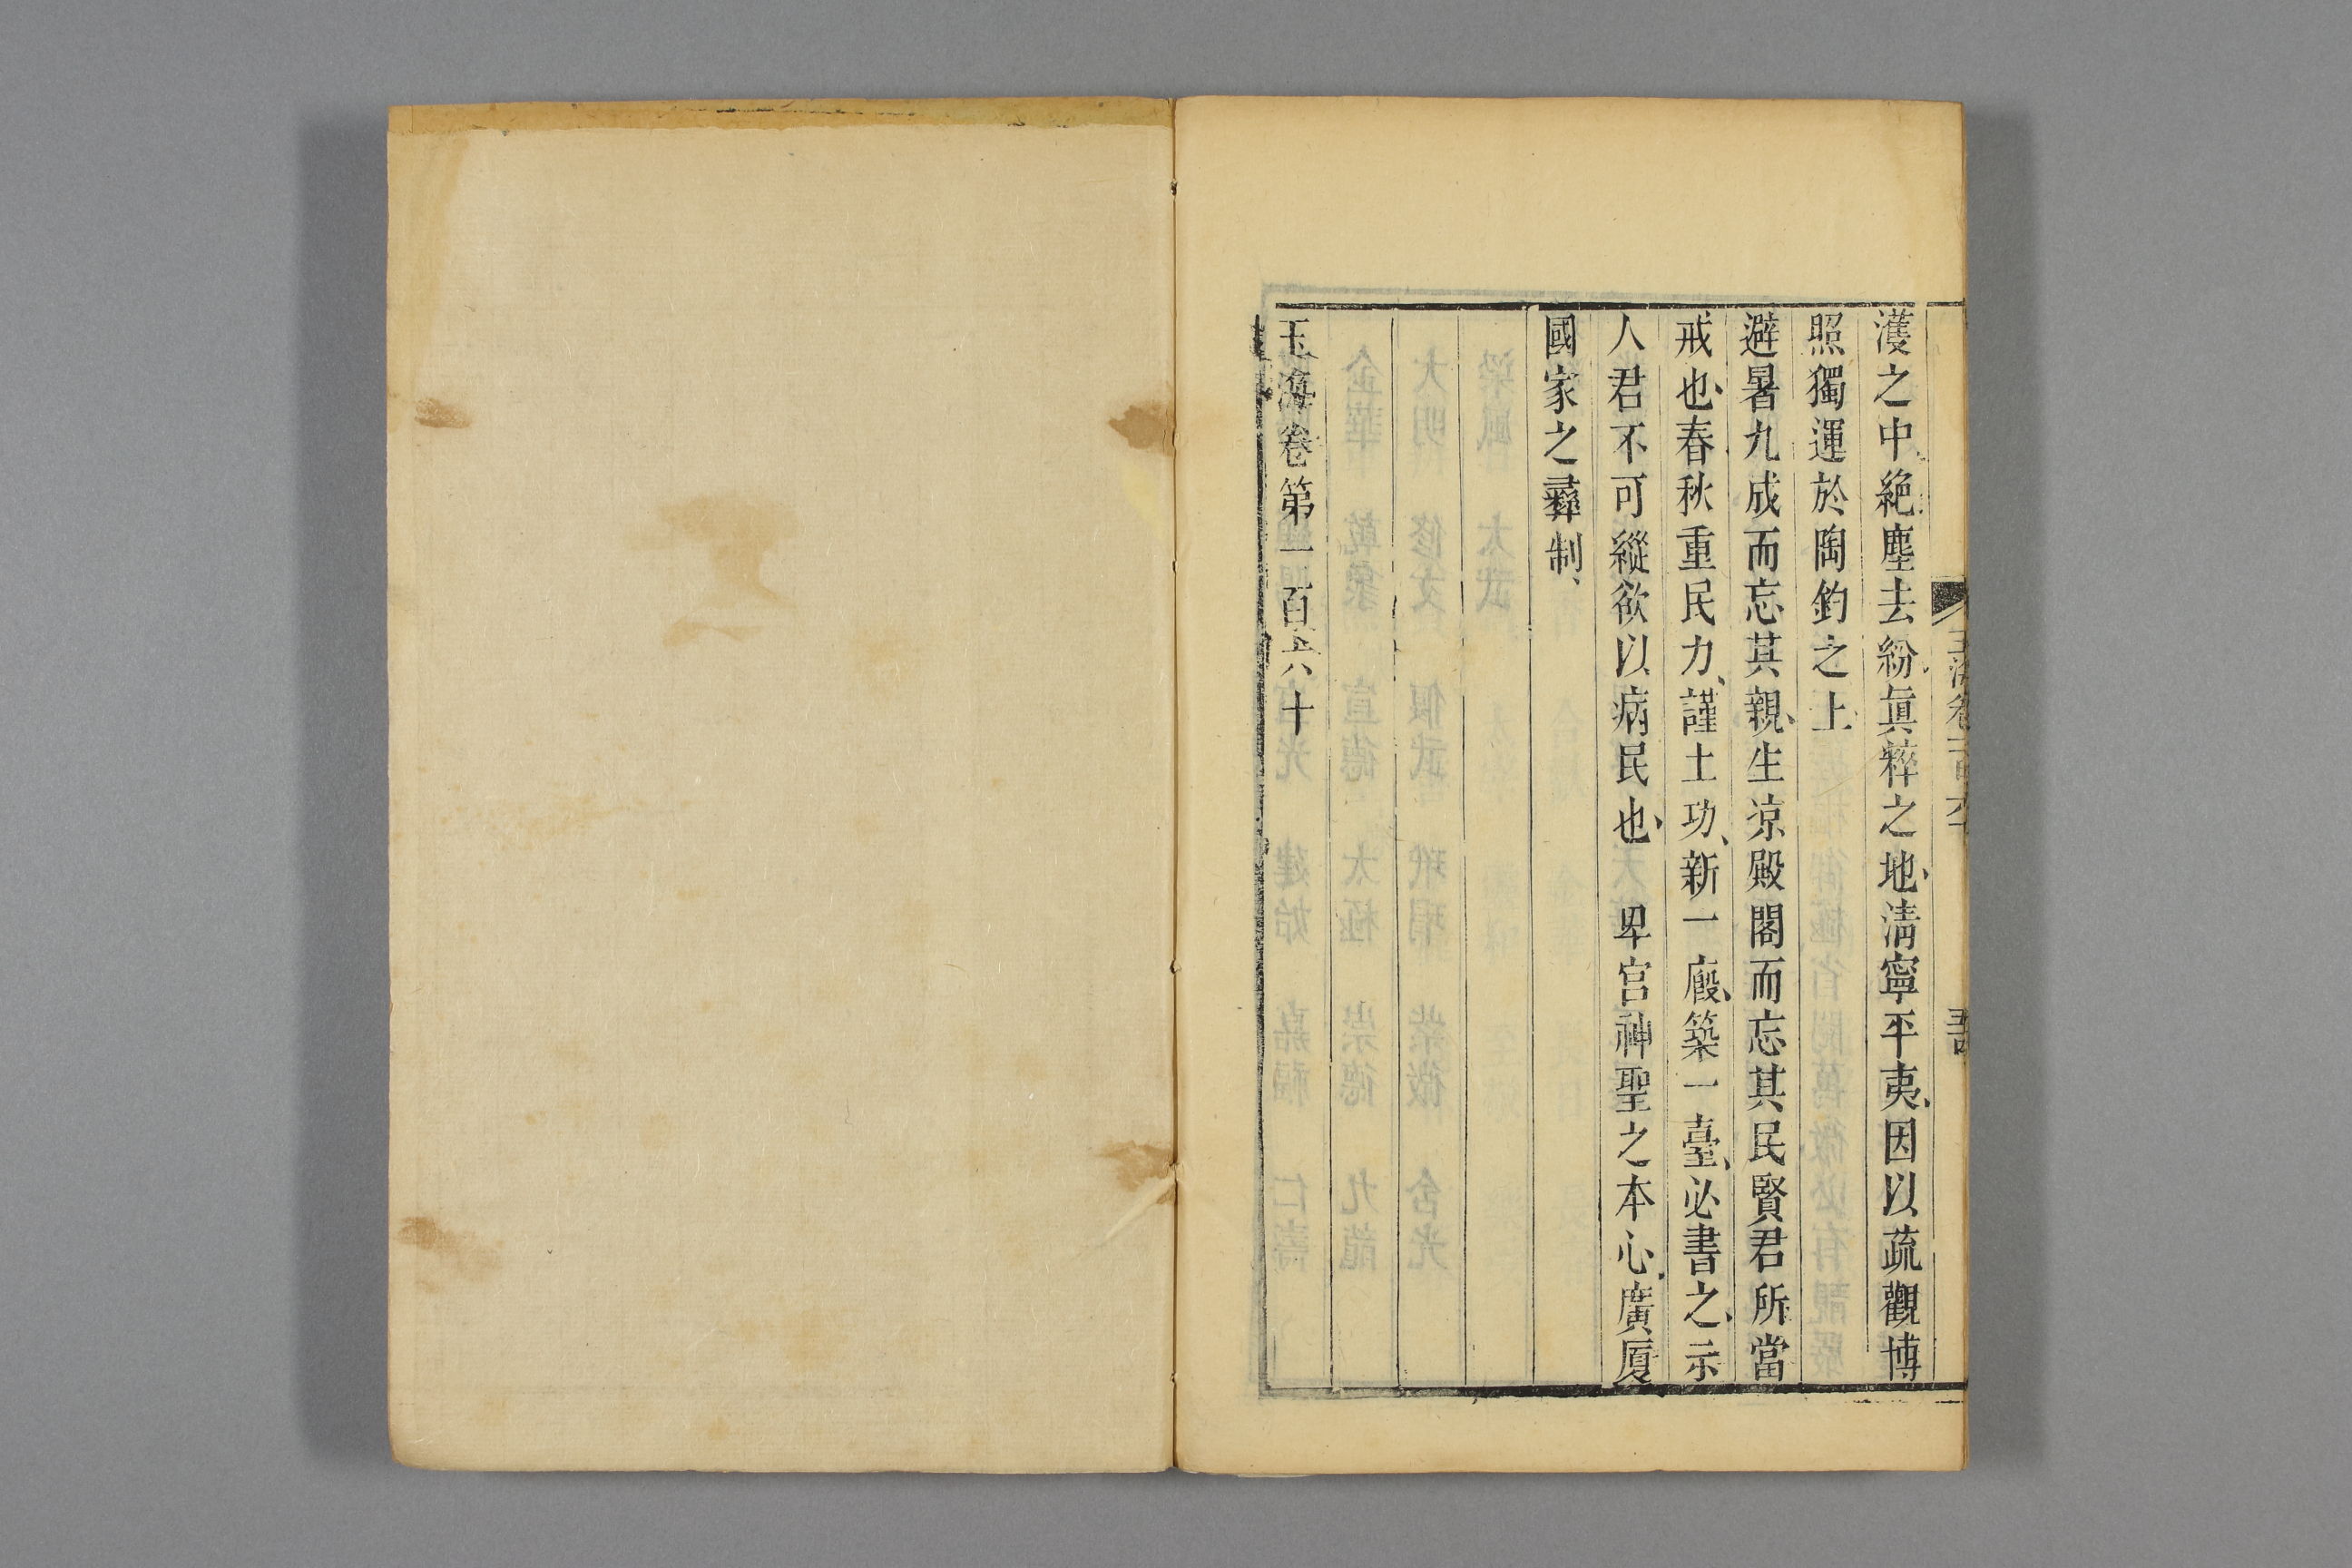 濩之中絶塵去紛眞粹之地清寧平夷因以疏觀博
照獨運於陶鈞之上
避暑九成而忘其親生涼殿閣而忘其民賢君所當
戒也春秋重民力謹土功新一廄築一臺必書之示
人君不可縱欲以病民也　卑宮神聖之本心廣厦
國家之彝制
玉海卷第一百六十